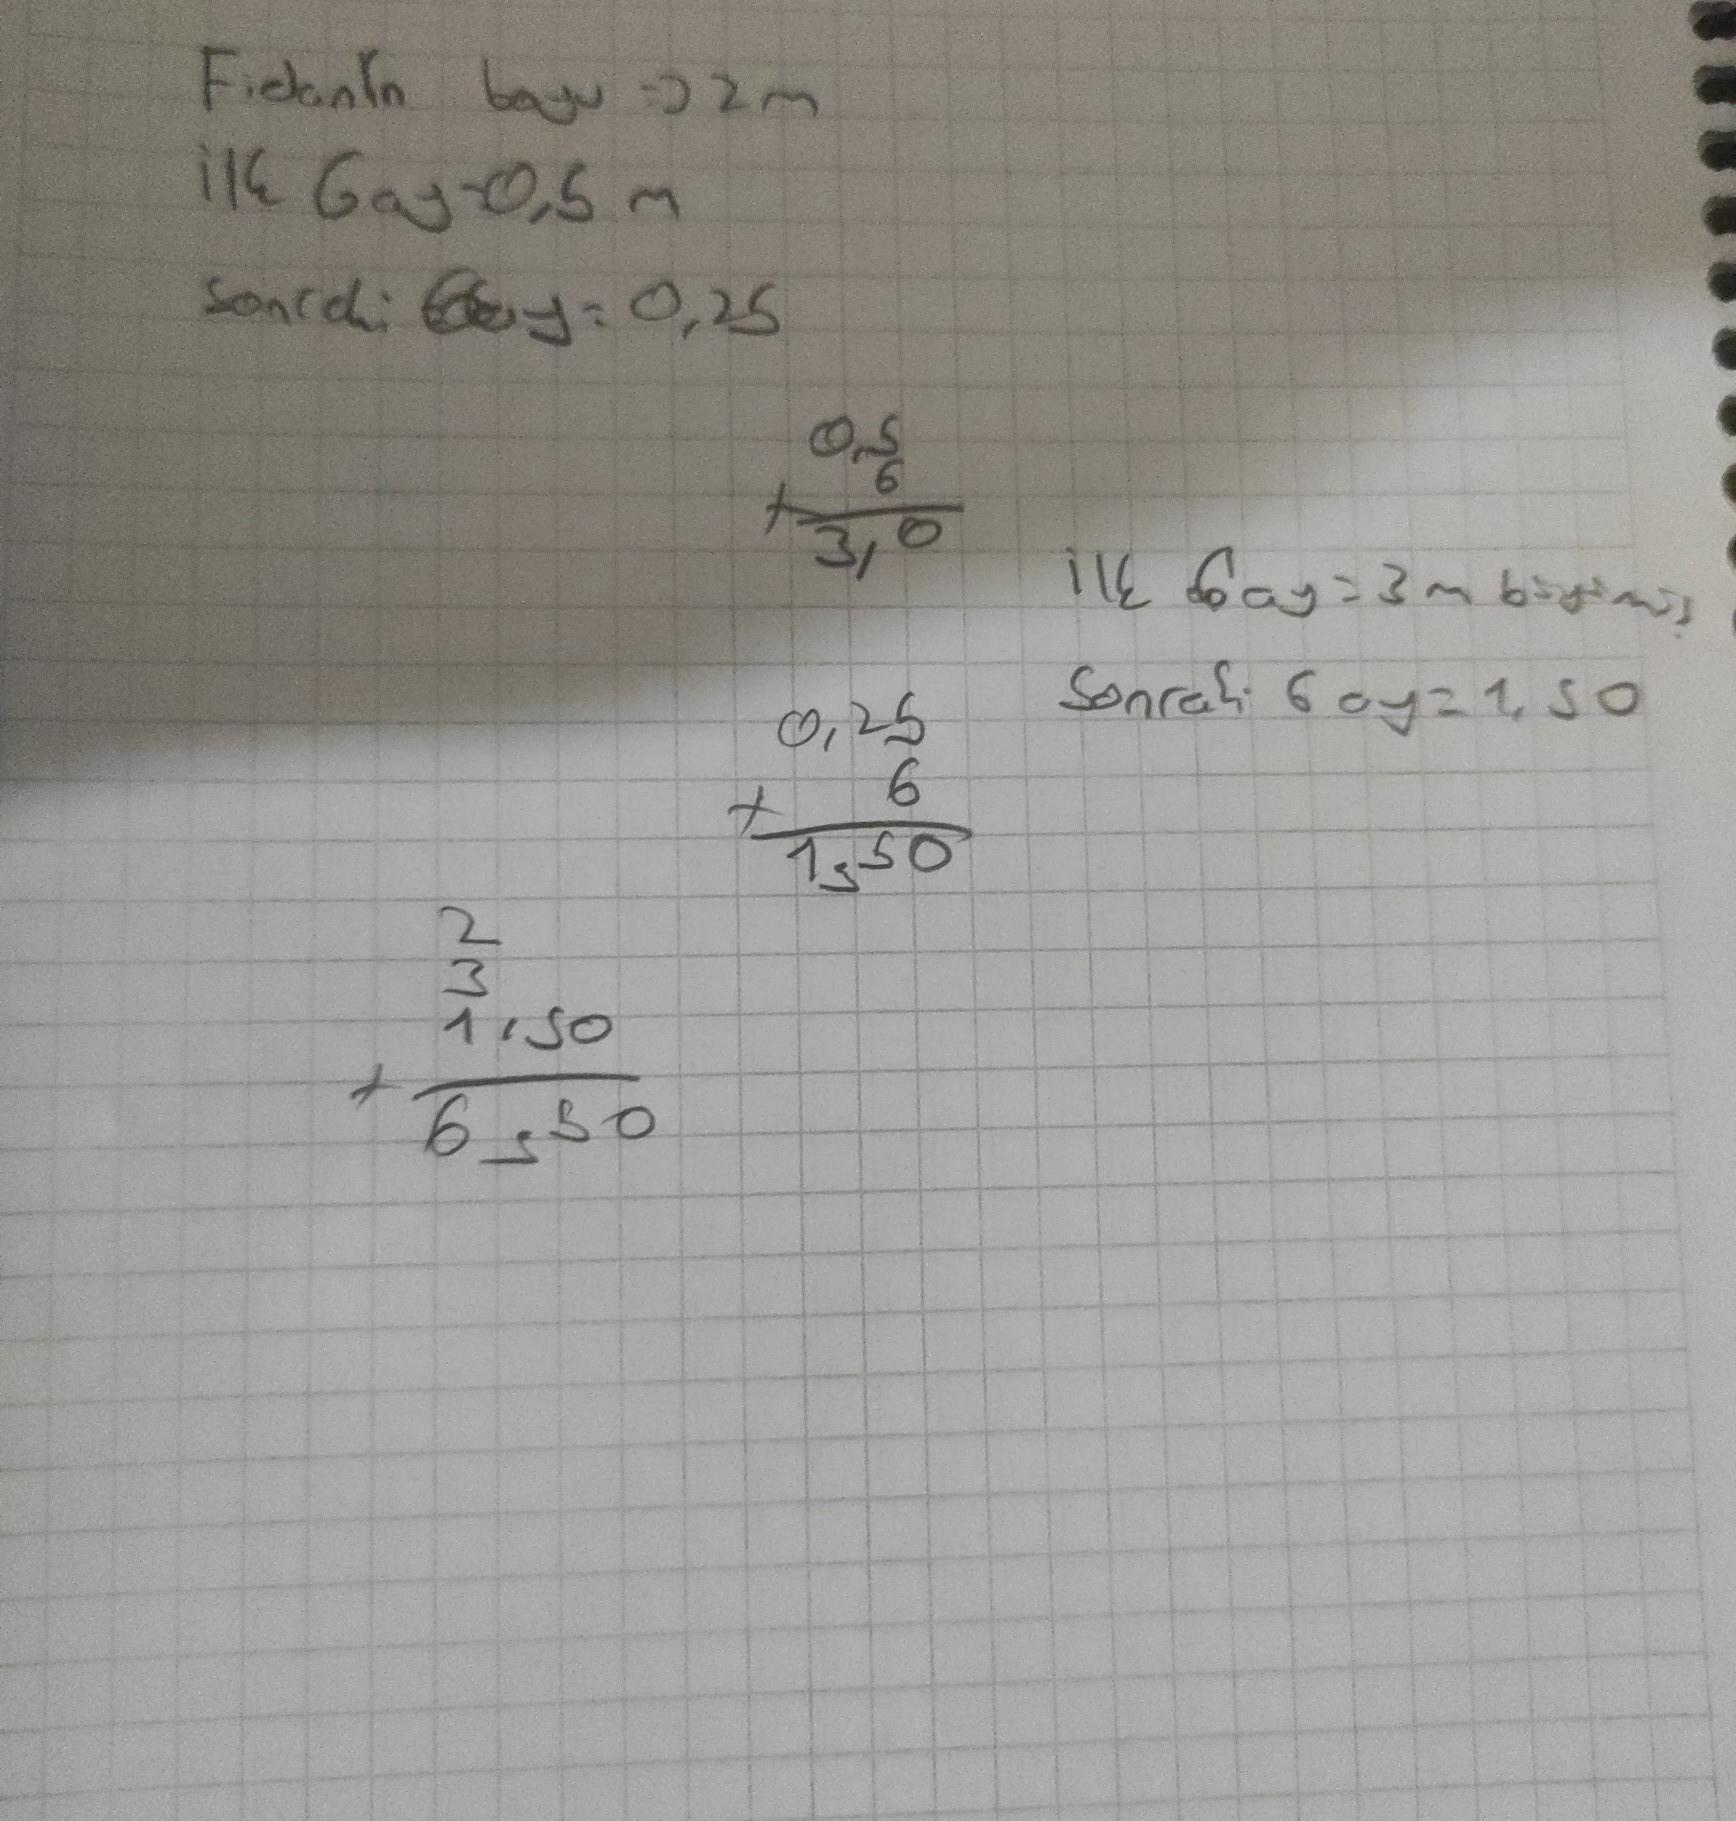 Fidanın boyu => 2 m
ilk 6 ay = 0,5 m
sonraki 6 ay = 0,25
0,5
6
x
3,0
ilk 6 ay = 3 m büyümüş
Sonraki 6 ay = 1,50
0,25
6
x
1,50
2
3
1,50
+
6,50